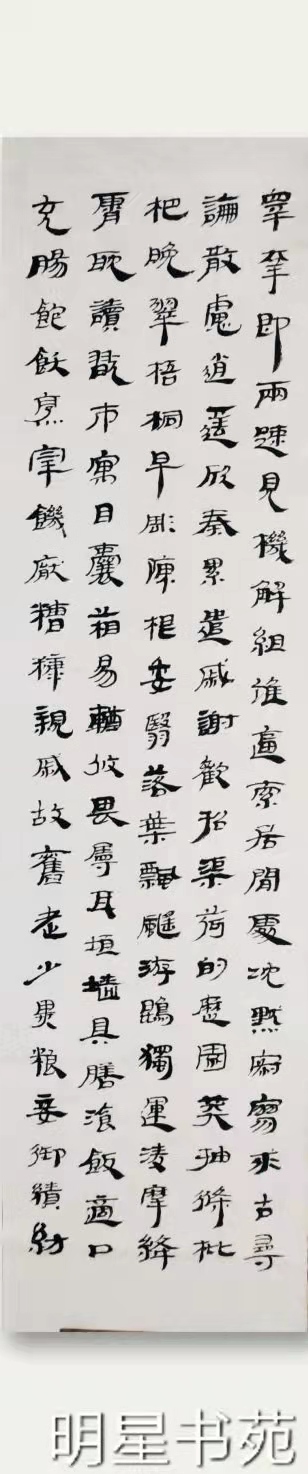 皋幸即兩疎見機解組誰逼索居閒處沈默寂寥求古尋
論散慮逍遥欣奏累遣戚謝歡招渠荷的歷園莽抽條枇
杷晚翠梧桐早彫陳根委翳落葉飄颻游鵾獨運凌摩絳
霄耽讀翫市寓目囊箱易輶攸畏屬耳垣墻具膳飡飯適口
充腸飽飫烹宰饑厭糟糠親戚故舊老少異粮妾御績紡
明星书苑